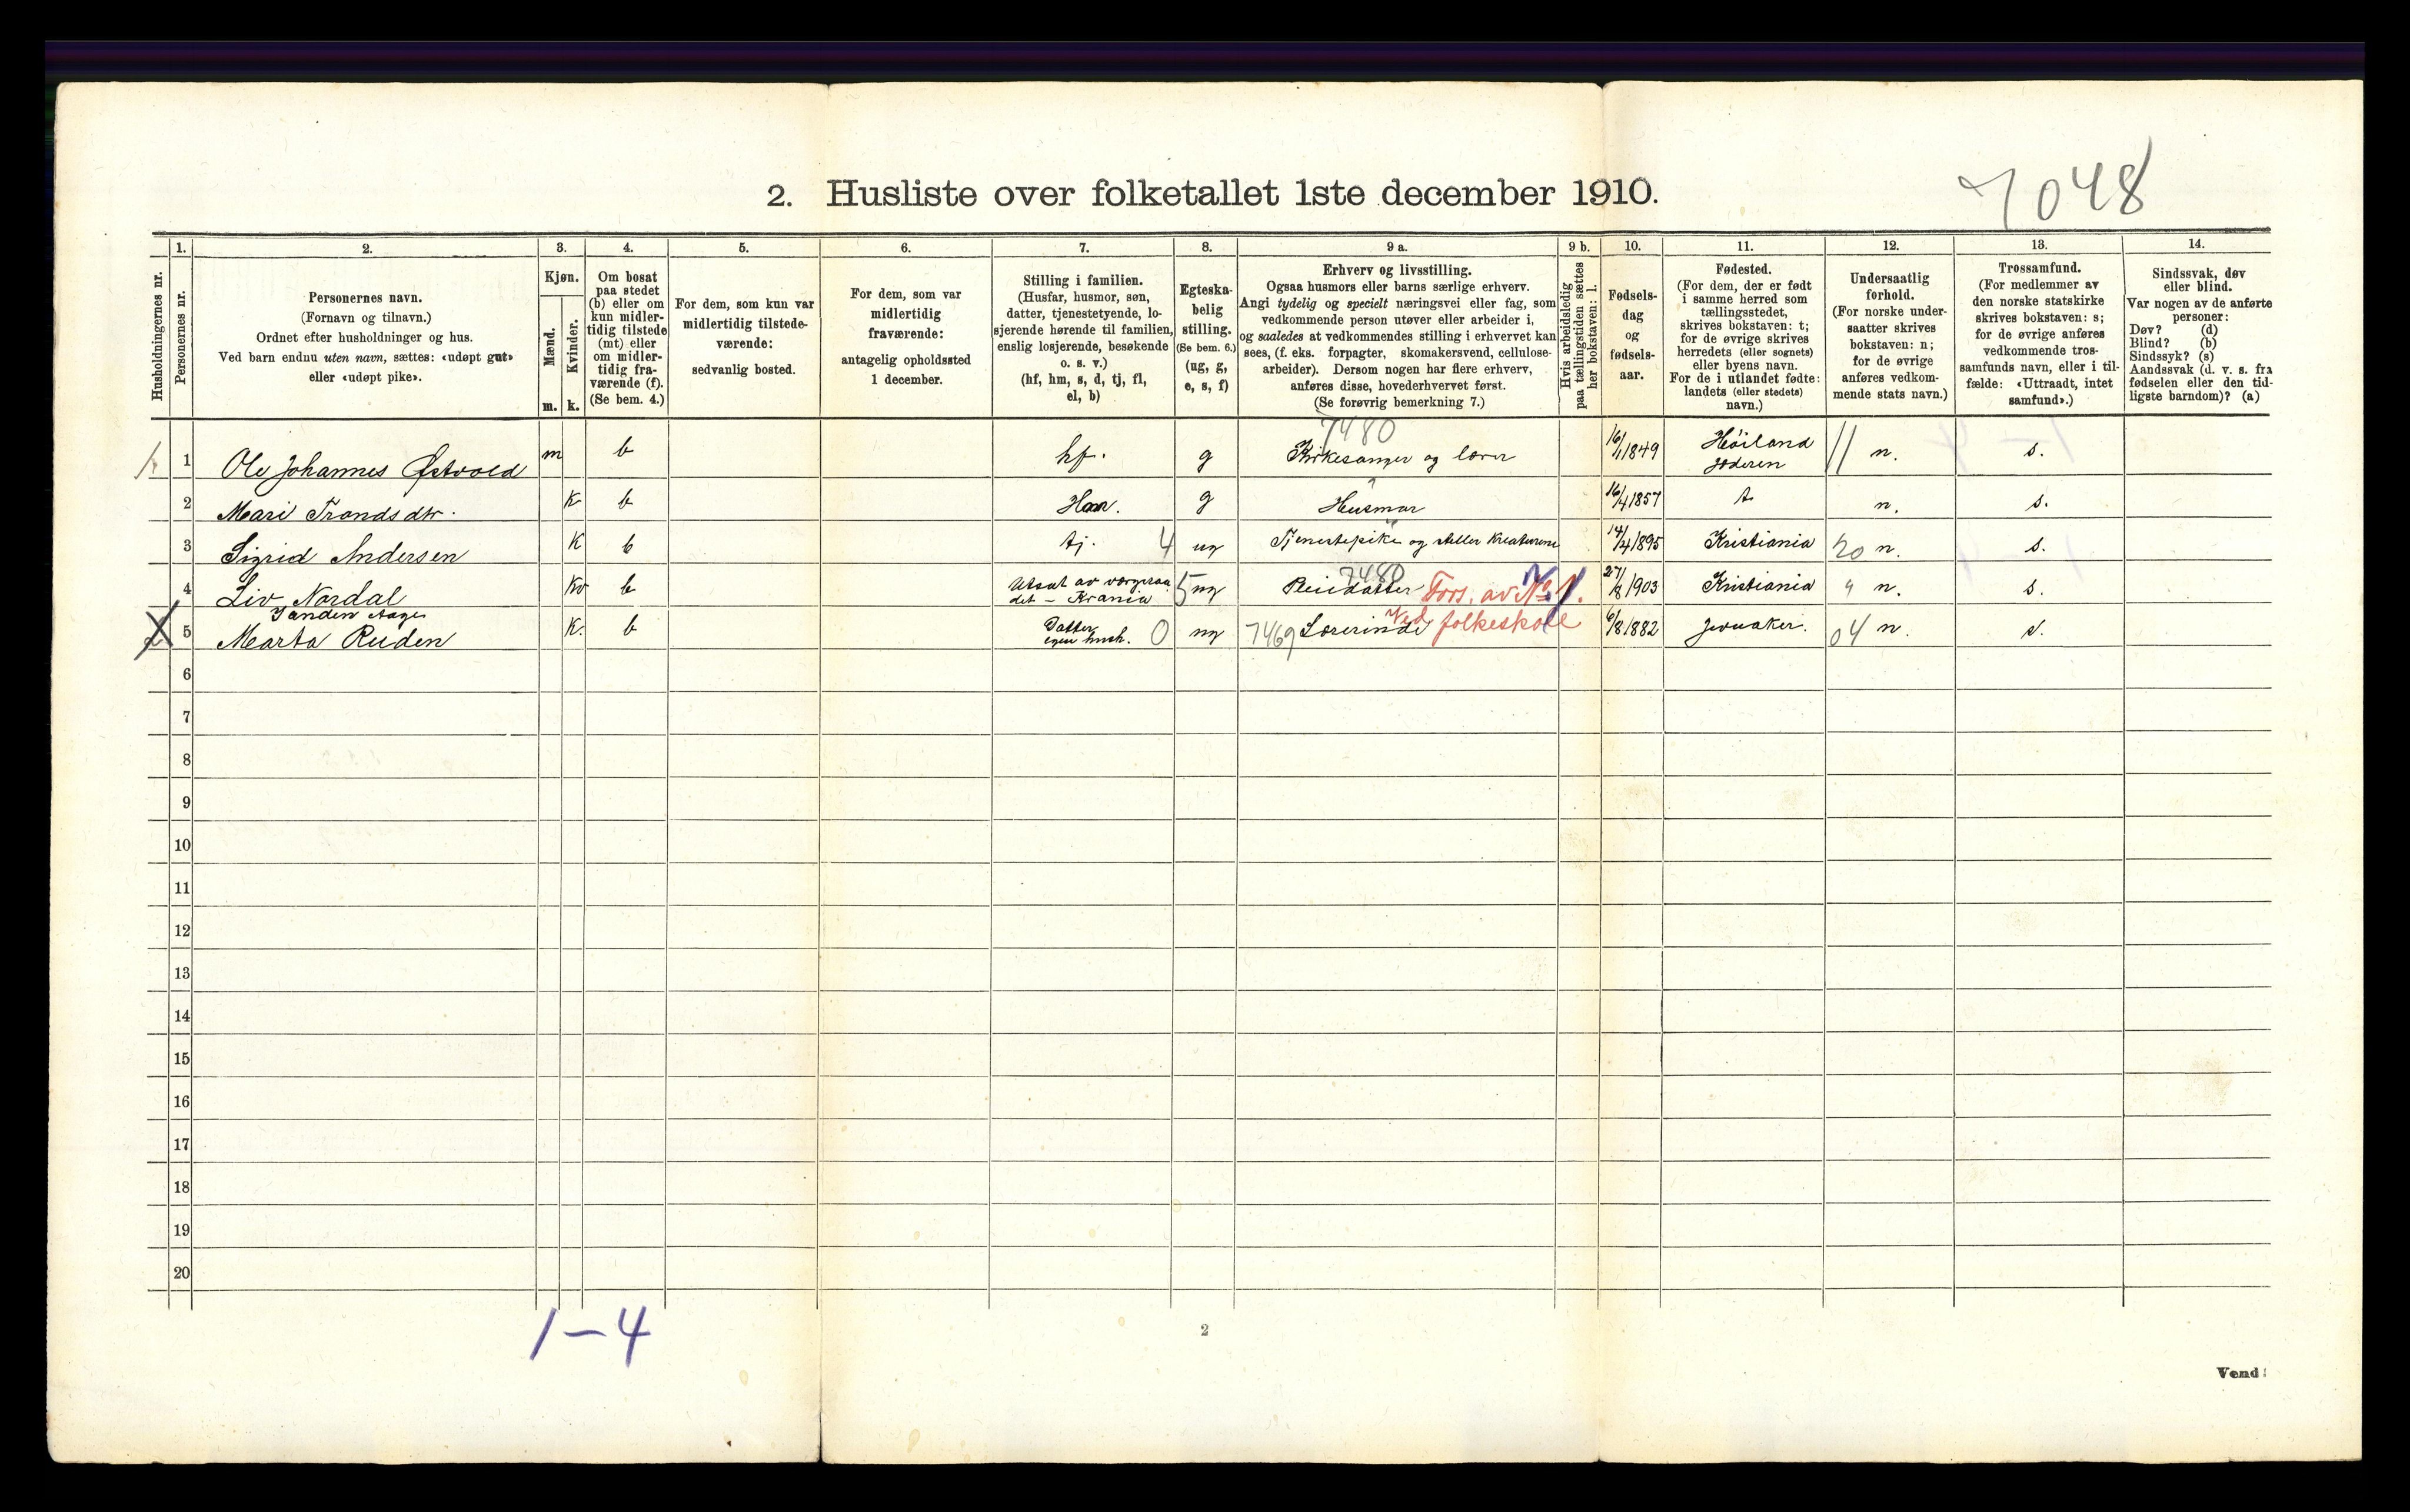 7048
2. Husliste over folketallet 1ste december 1910.
Husholdningernes nr.
1.
Personernes nr.
2.
Personernes navn.
(Fornavn og tilnavn.)
Ordnet efter husholdninger og hus.
Ved barn endnu uten navn, sættes: «udøpt gut»
eller «udøpt pike».
3.
Kjøn.
Mænd.
Kvinder.
m. k.
4.
Om bosat
paa stedet
(b) eller om
kun midler-
tidig tilstede
(mt) eller
om midler-
tidig fra-
værende (f).
(Se bem. 4.)
5.
For dem, som kun var
midlertidig tilstede-
værende:
sedvanlig bosted.
6.
For dem, som var
midlertidig
fraværende:
antagelig opholdssted
1 december.
7.
Stilling i familien.
(Husfar, husmor, søn,
datter, tjenestetyende, lo-
sjerende hørende til familien,
enslig losjerende, besøkende
o. s. v.)
(hf, hm, s, d, tj, fl,
el, b)
8.
Egteska-
belig
stilling.
(Se bem. 6.)
(ug, g,
e, s, f)
9 a.
Erhverv og livsstilling.
Ogsaa husmors eller barns særlige erhverv.
Angi tydelig og specielt næringsvei eller fag, som
vedkommende person utøver eller arbeider i,
og saaledes at vedkommendes stilling i erhvervet kan
sees, (f. eks. forpagter, skomakersvend, cellulose-
arbeider). Dersom nogen har flere erhverv,
anføres disse, hovederhvervet først.
(Se forøvrig bemerkning 7.)
9 b.
Hvis arbeidsledig
paa tællingstiden sættes
her bokstaven: l.
10.
Fødsels-
dag
og
fødsels-
aar.
11.
Fødested.
(For dem, der er født
i samme herred som
tællingsstedet,
skrives bokstaven: t;
for de øvrige skrives
herredets (eller sognets)
eller byens navn.
For de i utlandet fødte:
landets (eller stedets)
navn.)
12.
Undersaatlig
forhold.
(For norske under-
saatter skrives
bokstaven: n;
for de øvrige
anføres vedkom-
mende stats navn.)
13.
Trossamfund.
(For medlemmer av
den norske statskirke
skrives bokstaven: s;
for de øvrige anføres
vedkommende tros-
samfunds navn, eller i til-
fælde: «Uttraadt, intet
samfund».)
14.
Sindssvak, døv
eller blind.
Var nogen av de anførte
personer:
Døv? (d)
Blind? (b)
Sindssyk? (s)
Aandssvak (d. v. s. fra
fødselen eller den tid-
ligste barndom)? (a)
7480
1 Ole Johannes Østvold m b hf. g Kirkesanger og lærer 16/1 1849 Höiland Jæderen 11 n. s.
2 Mari Trondsdtr. K b g Husmor 16/4 1857 t n. s.
3 Sigrid Andersen K b tj. 4 ug Tjenestepike og steller Kreaturene 14/4 1895 Kristiania 20 n. s.
7480
4 Liv Nordal Kv b Utsat av værgeraa det - Krania 5 ug Pleiedatter Fors. av No 1. 27/8 1903 Kristiania " n. s.
5 Marta Ruden K. b Datter egen hush. 0 ug 7469 Lærerinde Ved folkeskole 6/8 1882 Jevnaker. 04 n. s.
6
7
8
9
10
11
12
13
14
15
16
17
18
19
20
1-4
2
Vend!